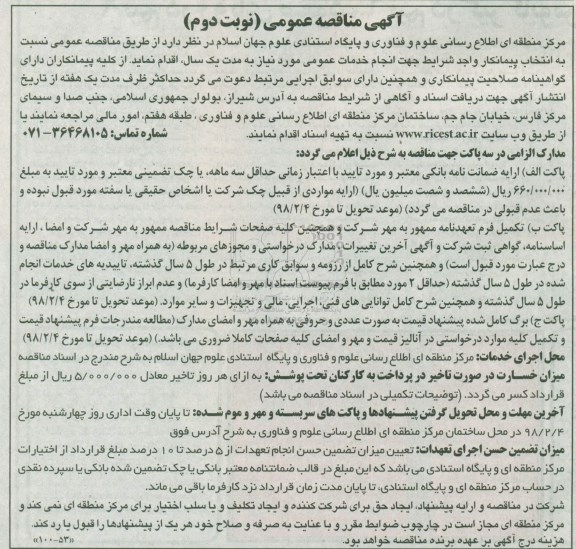 آگهی مناقصه عمومی (نوبت دوم)
مرکز منطقه ای اطلاع رسانی علوم و فناوری و پایگاه استنادی علوم جهان اسلام در نظر دارد از طریق مناقصه عمومی نسبت
به انتخاب پیمانکار واجد شرایط جهت انجام خدمات عمومی مورد نیاز به مدت یک سال، اقدام نماید. از کلیه پیمانکاران دارای
گواهینامه صلاحیت پیمانکاری و همچنین دارای سوابق اجرایی مرتبط دعوت می گردد حداکثر ظرف مدت یک هفته از تاریخ
انتشار آگهی جهت دریافت اسناد و آگاهی از شرایط مناقصه به آدرس شیراز، بولوار جمهوری اسلامی، جنب صدا و سیمای
مرکز فارس، خیابان جام جم، ساختمان مرکز منطقه ای اطلاع رسانی علوم و فناوری ، طبقه هفتم، امور مالی مراجعه نمایند یا
از طریق وب سایت www.ricest.ac.ir نسبت به تهیه اسناد اقدام نمایند. شماره تماس: ۳۶۴۶۸۱۰۵ -۰۷۱
مدارک الزامی در سه پاکت جهت مناقصه به شرح ذیل اعلام می گردد:
پاکت الف) ارایه ضمانت نامه بانکی معتبر و مورد تایید با اعتبار زمانی حداقل سه ماهه، یا چک تضمینی معتبر و مورد تایید به مبلغ
۶۶۰/۰۰۰/۰۰۰ ریال (ششصد و شصت میلیون یال) (ارایه مواردی از قبیل چک شرکت یا اشخاص حقیقی یا سفته مورد قبول نبوده و
باعث عدم قبولی در مناقصه می گردد) (موعد تحویل تا مورخ ۹۸/۲/۴)
پاکت ب) تکمیل فرم تعهدنامه ممهور به مهر شرکت و همچنین کلیه صفحات شرایط مناقصه ممهور به مهر شرکت و امضا ، ارایه
اساسنامه، گواهی ثبت شرکت و آگهی آخرین تغییرات، مدارک درخواستی و مجوزهای مربوطه (به همراه مهر و امضا مدارک مناقصه و
درج عبارت مورد قبول است) و همچنین شرح کامل از رزومه و سوابق کاری مرتبط در طول ۵ سال گذشته، تاییدیه های خدمات انجام
شده در طول ۵ سال گذشته (حداقل ۲ مورد مطابق با فرم پیوست اسناد با مهر و امضا کارفرما) و عدم ابراز نارضایتی از سوی کارفرما در
طول ۵ سال گذشته و همچنین شرح کامل توانایی های فنی، اجرایی، مالی و تجهیزات و سایر موارد. (موعد تحویل تا مورخ ۹۸/۲/۴)
پاکت ج) برگ کامل شده پیشنهاد قیمت به صورت عددی و حروفی به همراه مهر و امضای مدارک (مطالعه مندرجات فرم پیشنهاد قیمت
و تکمیل کلیه موارد درخواستی در آنالیز قیمت و مهر و امضای کلیه صفحات کاملا ضروری می باشد.) (موعد تحویل تا مورخ ۹۸/۲/۴)
محل اجرای خدمات: مرکز منطقه ای اطلاع رسانی علوم و فناوری و پایگاه استنادی علوم جهان اسلام به شرح مندرج در اسناد مناقصه
میزان خسارت در صورت تاخیر در پرداخت به کارکنان تحت پوشش: به ازای هر روز تاخیر معادل ۵/۰۰۰/۰۰۰ ریال از مبلغ
قرارداد کسر می گردد. (توضیحات تکمیلی در اسناد مناقصه می باشد)
آخرین مهلت و محل تحویل گرفتن پیشنهادها و پاکت های سربسته و مهر و موم شده: تا پایان وقت اداری روز چهارشنبه مورخ
۹۸/۲/۴ در محل ساختمان مرکز منطقه ای اطلاع رسانی علوم و فناوری به شرح آدرس فوق
میزان تضمین حسن اجرای تعهدات: تعیین میزان تضمین حسن انجام تعهدات از ۵ درصد تا ۱۰ درصد مبلغ قرارداد از اختیارات
مرکز منطقه ای و پایگاه استنادی می باشد که این مبلغ در قالب ضمانتنامه معتبر بانکی یا چک تضمین شده بانکی یا سپرده نقدی
در حساب مرکز منطقه ای و پایگاه استنادی، تا پایان مدت زمان قرارداد نزد کارفرما باقی می ماند.
شرکت در مناقصه و ارایه پیشنهاد، ایجاد حق برای شرکت کننده و ایجاد تکلیف و یا سلب اختیار برای مرکز منطقه ای نمی کند و
مرکز منطقه ای مجاز است در چارچوب ضوابط مقرر و با عنایت به صرفه و صلاح خود هر یک از پیشنهادها را قبول یا رد کند.
هزینه درج آگهی بر عهده برنده مناقصه خواهد بود. «۱۰۰-۵۳»